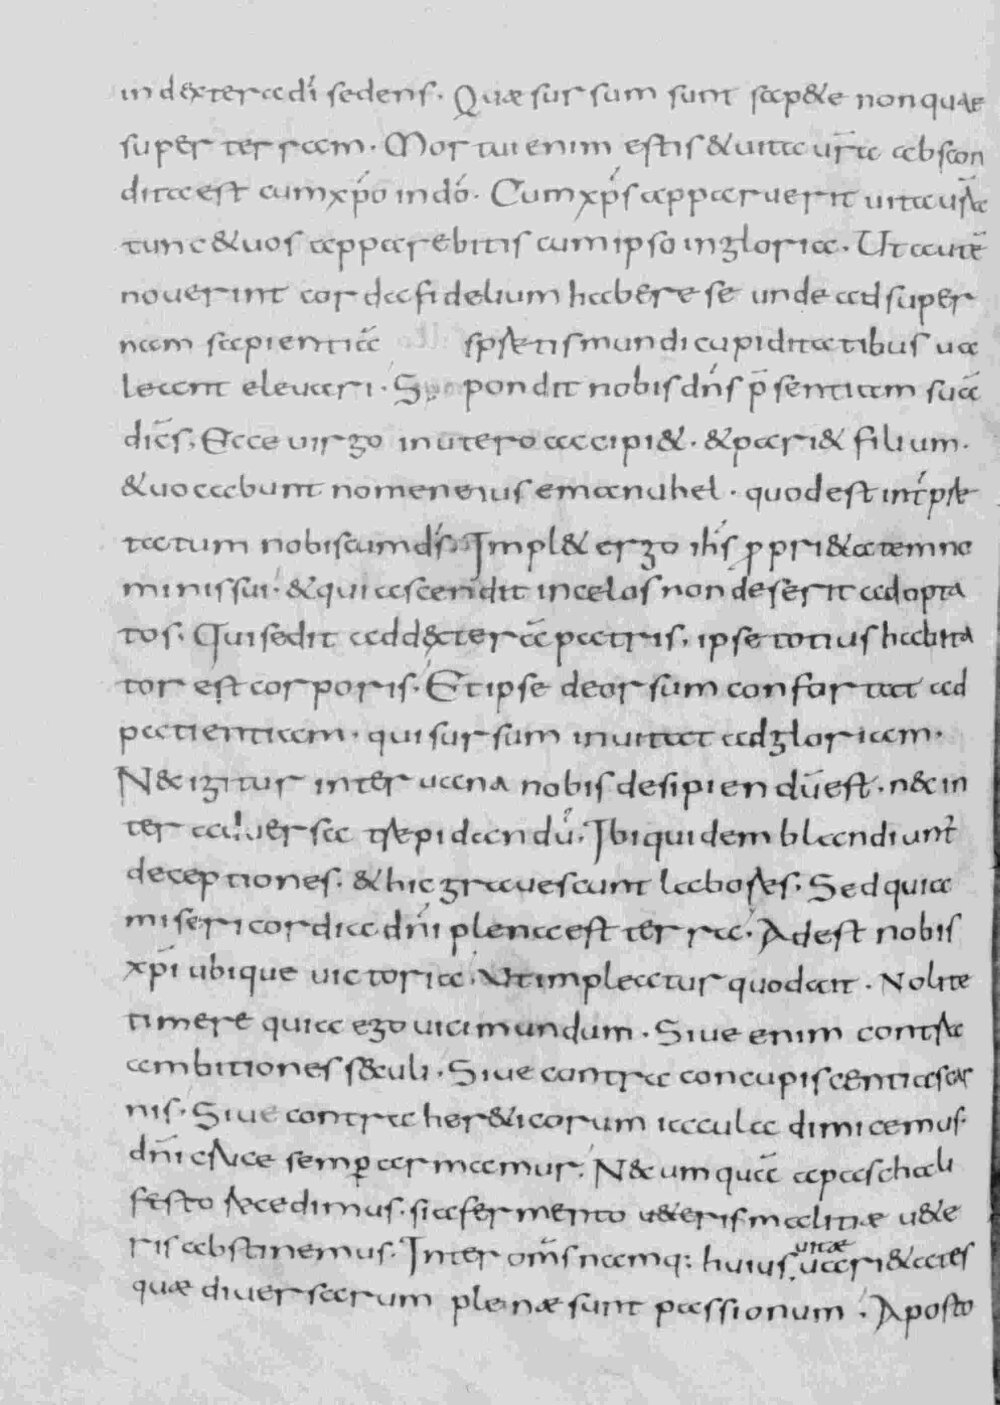 in dextera dī sedens. Quæ sursum sunt sap&e non quae
super terram. Mortui enim estis & uita ur̄a abscon
dita est cum xp̄o in dō. Cum xp̄s apparuerit uita ur̄a
tunc & uos apparebitis cum ipso in gloria. Ut autē
nouerint corda fidelium habere se unde ad super
nam sapientiā spr&is mundi cupiditatibus ua
leant eleuari. Spondit nobis dn̄s p̄sentiam suā
dicēs. Ecce uirgo in utero accipi&. & pari& filium.
& uocabunt nomen eius emanuhel. quod est int̄pr&
tatum nobiscum dś. Impl& ergo ih̄s ꝓpri&atem no
minis sui. & qui ascendit in celos non deserit adopta
tos. Qui sedit ad dexterā patris. ipse totius habita
tor est corporis. Et ipse deorsum confortat ad
patientiam. qui sursum inuitat ad gloriam.
N& igitur inter uana nobis desipiendū est. n& in
ter aduersa trepidandū. Ibi quidem blandiunt̄
deceptiones. & hic grauescunt labores. Sed quia
misericordia dn̄i plena est terra. Adest nobis
xp̄i ubique uictoria. Ut impleatur quod ait. Nolite
timere quia ego uici mundum. Siue enim contra
ambitiones s&culi. Siue contra concupiscentias car
nis. Siue contra her&icorum iacula dimicemus.
dn̄i cruce semꝑ armamur. N& umquā a paschali
festo recedimus. si a fermento u&eris malitiæ u&e
ris abstinemus. Inter om̄s namq: huius uitæ uari&ates
quæ diuersarum plenæ sunt passionum. Aposto